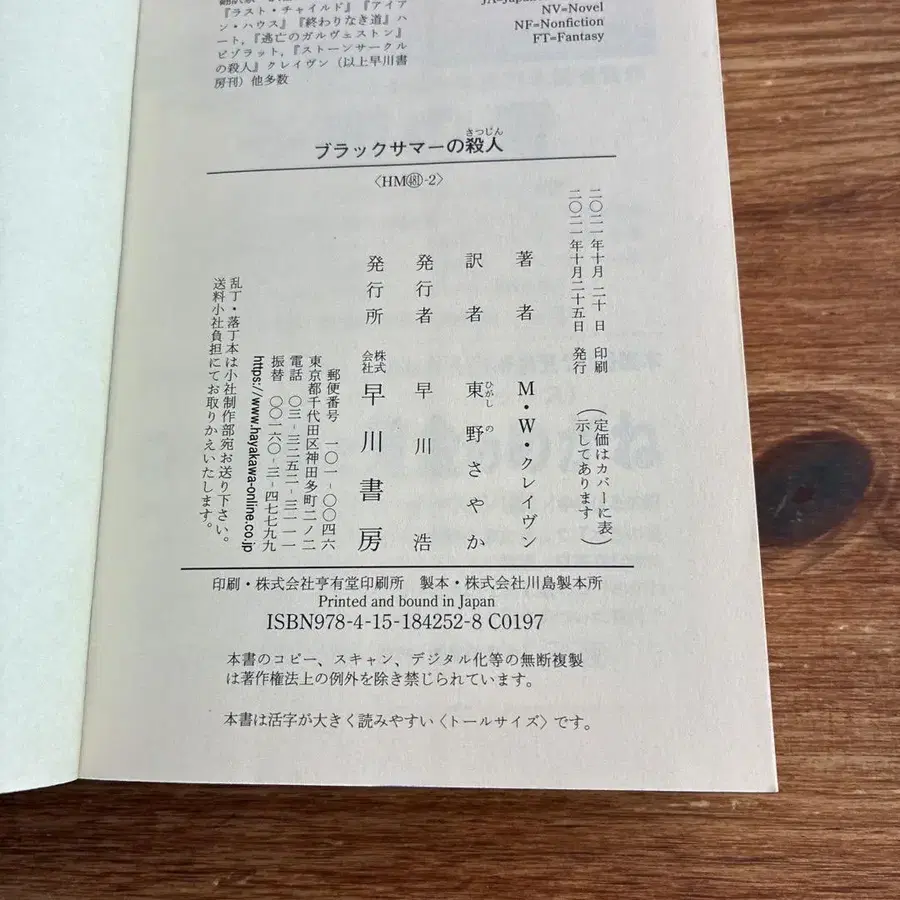 『ラスト・チャイルド』『アイアン・ハウス』『終わりなき道』ハート,『逃亡のガルヴェストン』ピゾラット,『ストーンサークルの殺人』クレイヴン(以上早川書房刊)他多数
NV=Novel
NF=Nonfiction
FT=Fantasy
ブラックサマーの殺人
さつじん
〈HM481-2〉
二〇二一年十月二十日 印刷
二〇二一年十月二十五日 発行
(定価はカバーに表示してあります)
著者 M・W・クレイヴン
訳者 東野さやか
ひがしの
発行者 早川浩
発行所 株式会社 早川書房
郵便番号 一〇一-〇〇四六
東京都千代田区神田多町二ノ二
電話 〇三-三二五二-三一一一
振替 〇〇一六〇-三-四七七九九
https://www.hayakawa-online.co.jp
乱丁・落丁本は小社制作部宛お送り下さい。
送料小社負担にてお取りかえいたします。
印刷・株式会社亨有堂印刷所 製本・株式会社川島製本所
Printed and bound in Japan
ISBN978-4-15-184252-8 C0197
本書のコピー、スキャン、デジタル化等の無断複製
は著作権法上の例外を除き禁じられています。
本書は活字が大きく読みやすい〈トールサイズ〉です。